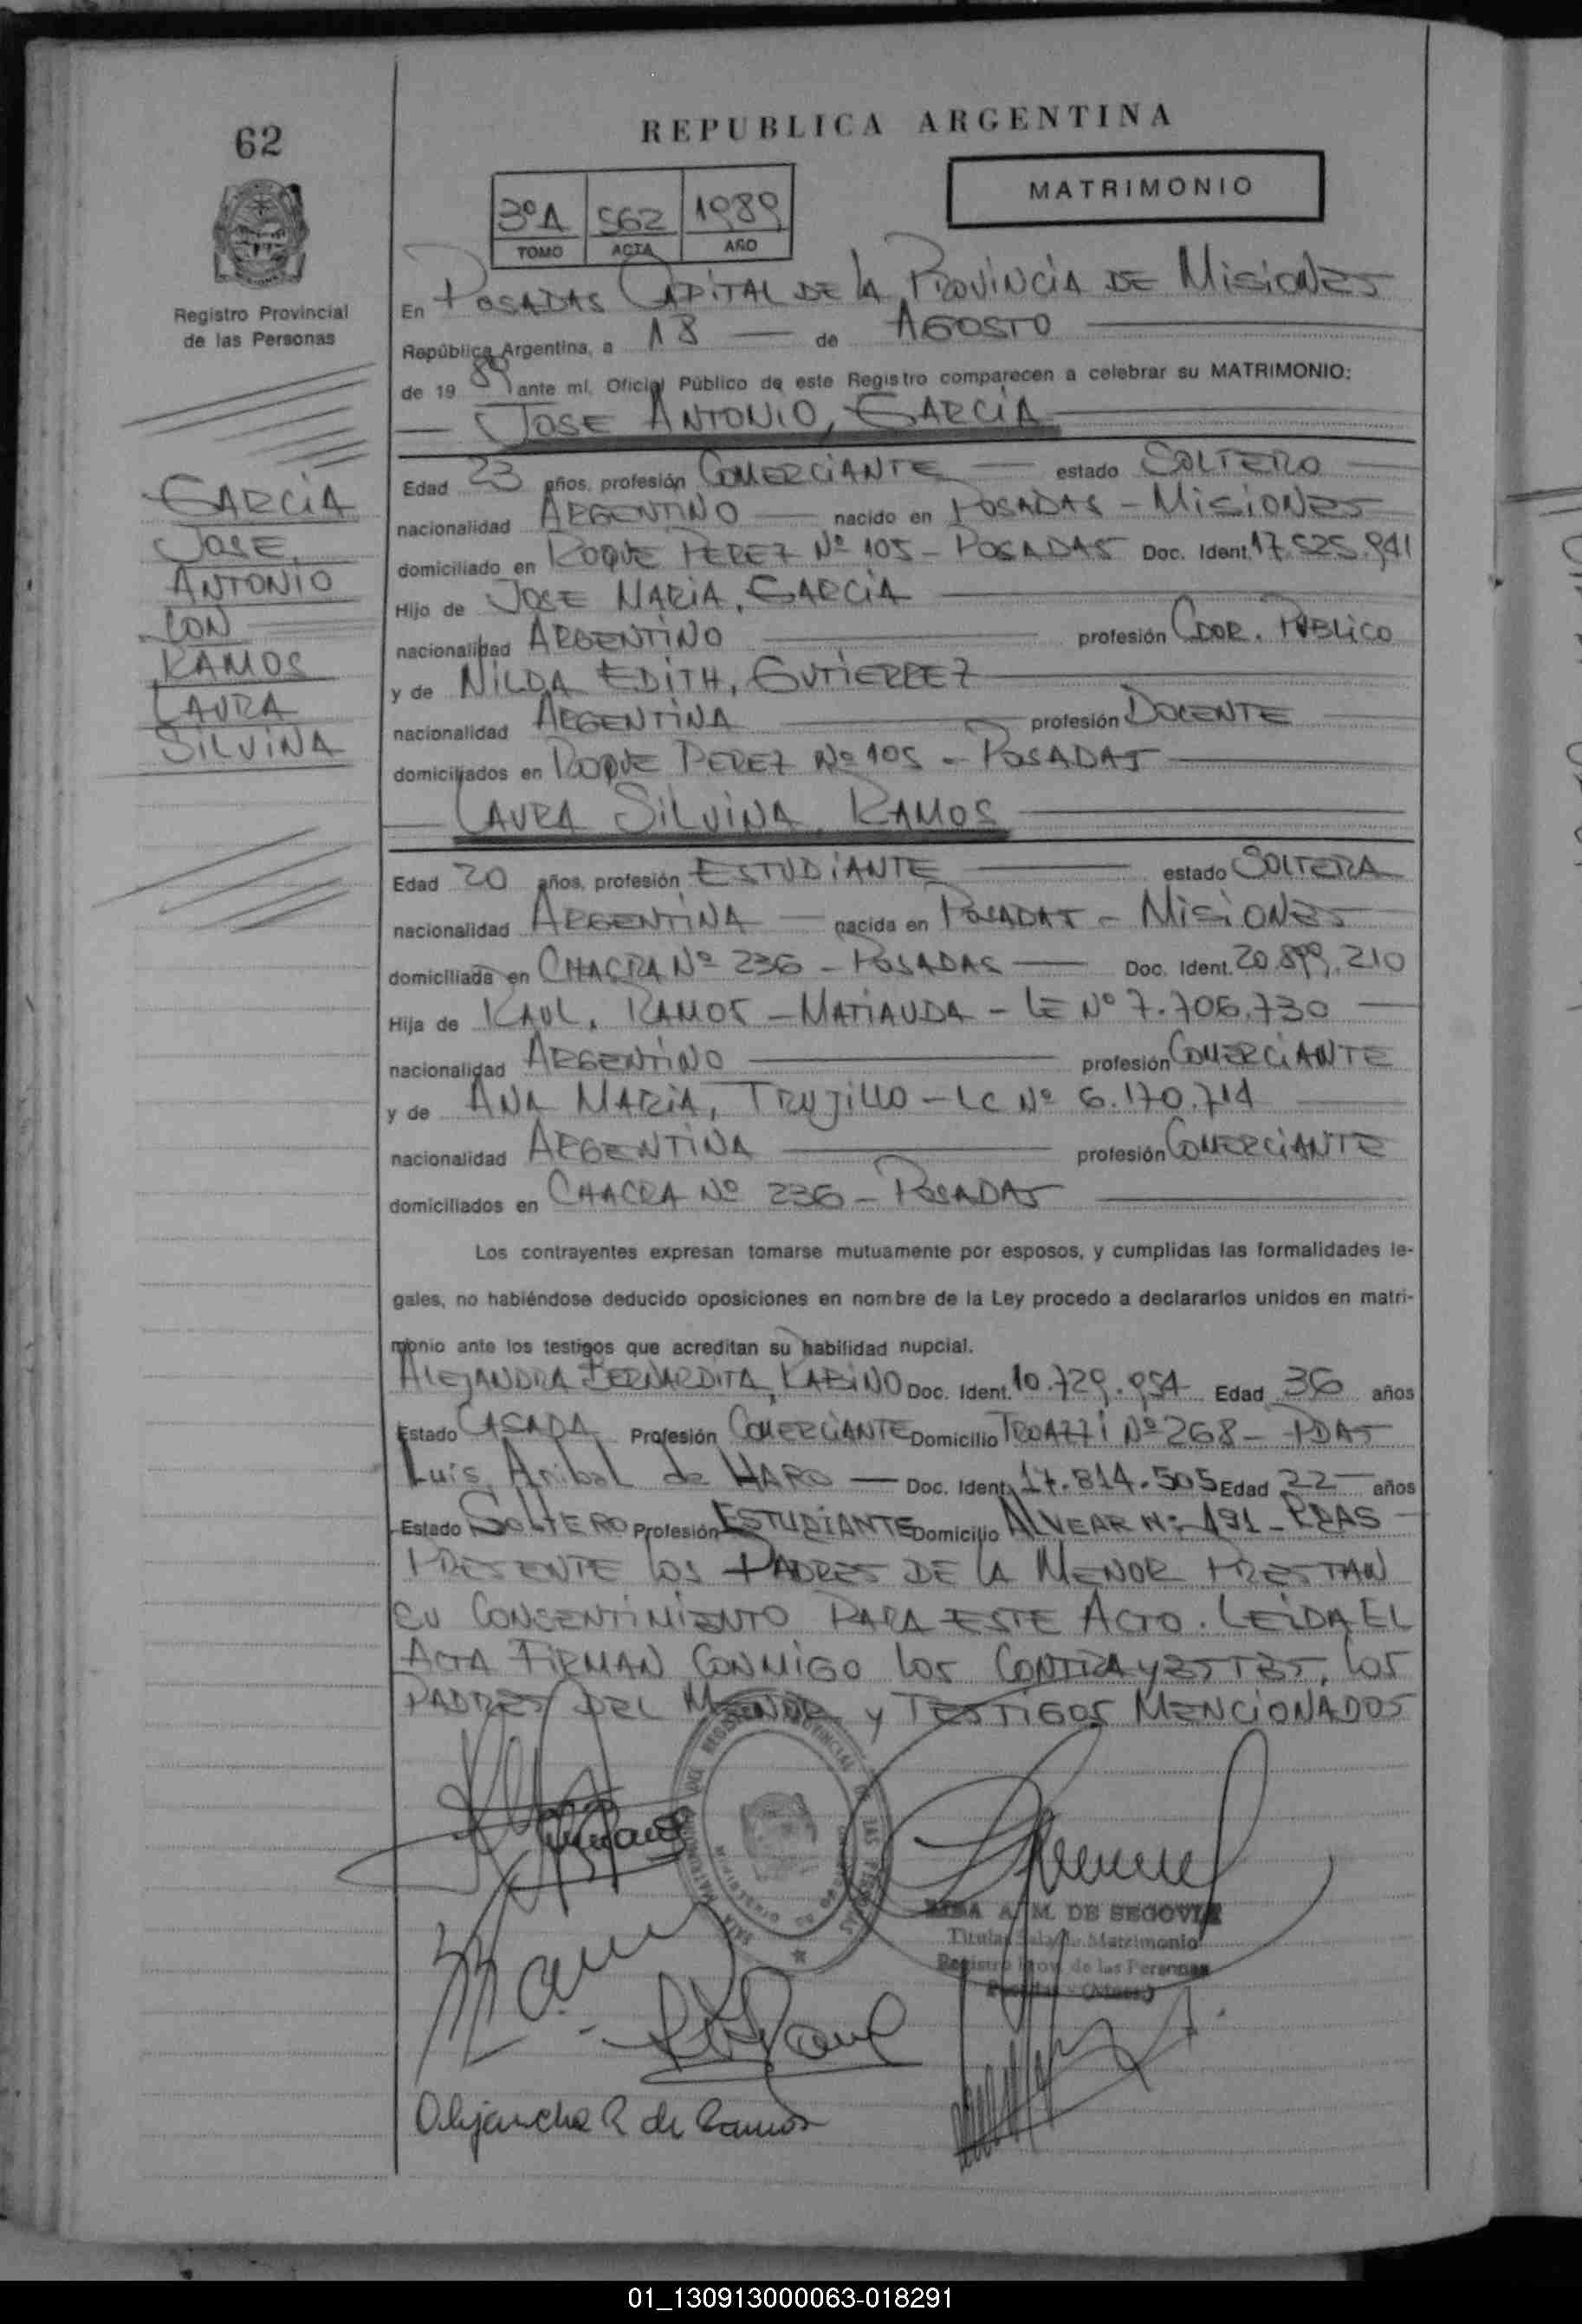 62
REPUBLICA ARGENTINA
MATRIMONIO
3º A 562 1989
TOMO ACTA AÑO
Registro Provincial
de las Personas
En POSADAS CAPITAL DE LA PROVINCIA DE MISIONES
República Argentina, a 18 de AGOSTO
de 1989 ante mí, Oficial Público de este Registro comparecen a celebrar su MATRIMONIO:
JOSE ANTONIO, GARCIA
Edad 23 años, profesión COMERCIANTE estado SOLTERO
nacionalidad ARGENTINO nacido en POSADAS - MISIONES
domiciliado en ROQUE PEREZ Nº 105 - POSADAS Doc. Ident. 17.525.941
Hijo de JOSE MARIA, GARCIA
nacionalidad ARGENTINO profesión CDOR. PUBLICO
y de NILDA EDITH, GUTIERREZ
nacionalidad ARGENTINA profesión DOCENTE
domiciliados en ROQUE PEREZ Nº 105 - POSADAS
GARCIA
JOSE
ANTONIO
CON
RAMOS
LAURA
SILVINA
LAURA SILVINA, RAMOS
Edad 20 años, profesión ESTUDIANTE estado SOLTERA
nacionalidad ARGENTINA nacida en POSADAS - MISIONES
domiciliada en CHACRA Nº 236 - POSADAS Doc. Ident. 20.899.210
Hija de RAUL, RAMOS - MATIAUDA - LE Nº 7.706.730
nacionalidad ARGENTINO profesión COMERCIANTE
y de ANA MARIA, TRUJILLO - LC Nº 6.170.714
nacionalidad ARGENTINA profesión COMERCIANTE
domiciliados en CHACRA Nº 236 - POSADAS
Los contrayentes expresan tomarse mutuamente por esposos, y cumplidas las formalidades le-
gales, no habiéndose deducido oposiciones en nombre de la Ley procedo a declararlos unidos en matri-
monio ante los testigos que acreditan su habilidad nupcial.
ALEJANDRA BERNARDITA, RABINO Doc. Ident. 10.729.954 Edad 36 años
Estado CASADA Profesión COMERCIANTE Domicilio Nº 268 - PDAS
Luis Anibal de HARO Doc. Ident. 17.814.505 Edad 22 años
Estado SOLTERO Profesión ESTUDIANTE Domicilio ALVEAR Nº 191 - PDAS
PRESENTE LOS PADRES DE LA MENOR PRESTAN
SU CONSENTIMIENTO PARA ESTE ACTO. LEIDA EL
ACTA FIRMAN CONMIGO LOS CONTRAYESTES, LOS
PADRES DEL MENOR y TESTIGOS MENCIONADOS
A. M. DE SEGOVIA
Titular Sala de Matrimonio
Registro Prov. de las Personas
Alejandra R de Ramos
01_130913000063-018291